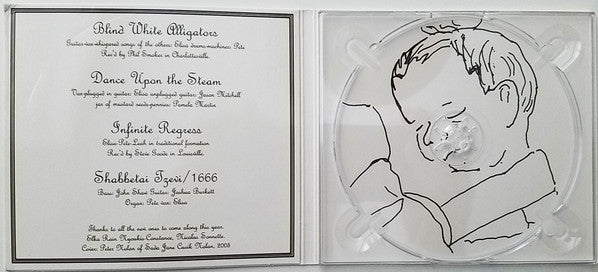 Blind White Alligators
Guitar-vox-whispered songs of the others: Elisa drums-machines: Pete
Rec'd by Phil Smoker in Charlottesville.
Dance Upon the Steam
Vox-plugged in guitar: Elisa unplugged guitar: Jason Mitchell
jar of mustard seeds-pennies: Pamela Martin
Infinite Regress
Elisa-Pete-Leah in traditional formation
Rec'd by Steve Goode in Louisville.
Shabbetai Tzevi/1666
Bass: John Shaw Guitar: Joshua Burkett
Organ: Pete vox: Elisa
Thanks to all the new ones to come along this year.
Elka Rain Constance, Nicolas Sonnette.
Cover: Peter Nolan of Sada Jane Cassik Nolan, 2005